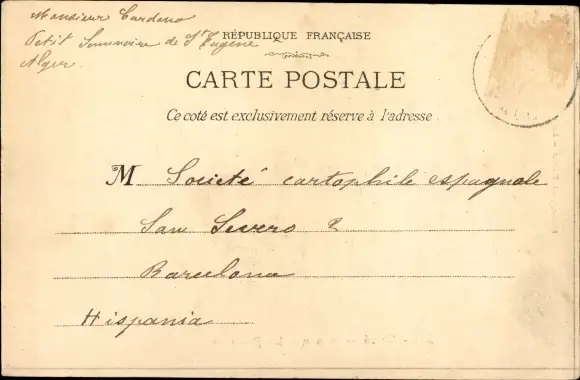 Monsieur Cardona
Petit Seminaire de St Eugène
Alger.
RÉPUBLIQUE FRANÇAISE
CARTE POSTALE
Ce coté est exclusivement réserve à l'adresse
M Societé cartophile espagnole
San Severo 2
Barcelona
Hispania